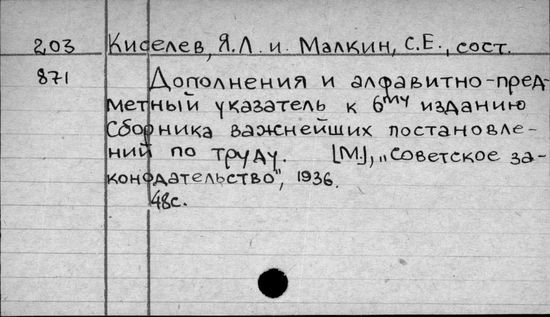 203 Киселев, Я.Л. и Малкин, С.Е., сост.
871 Дополнения и алфавитно-пред-
метный указатель к 6му изданию
Сборника важнейших постановле-
ний по труду. [М.], „Советское за-
конодательство", 1936.
48с.